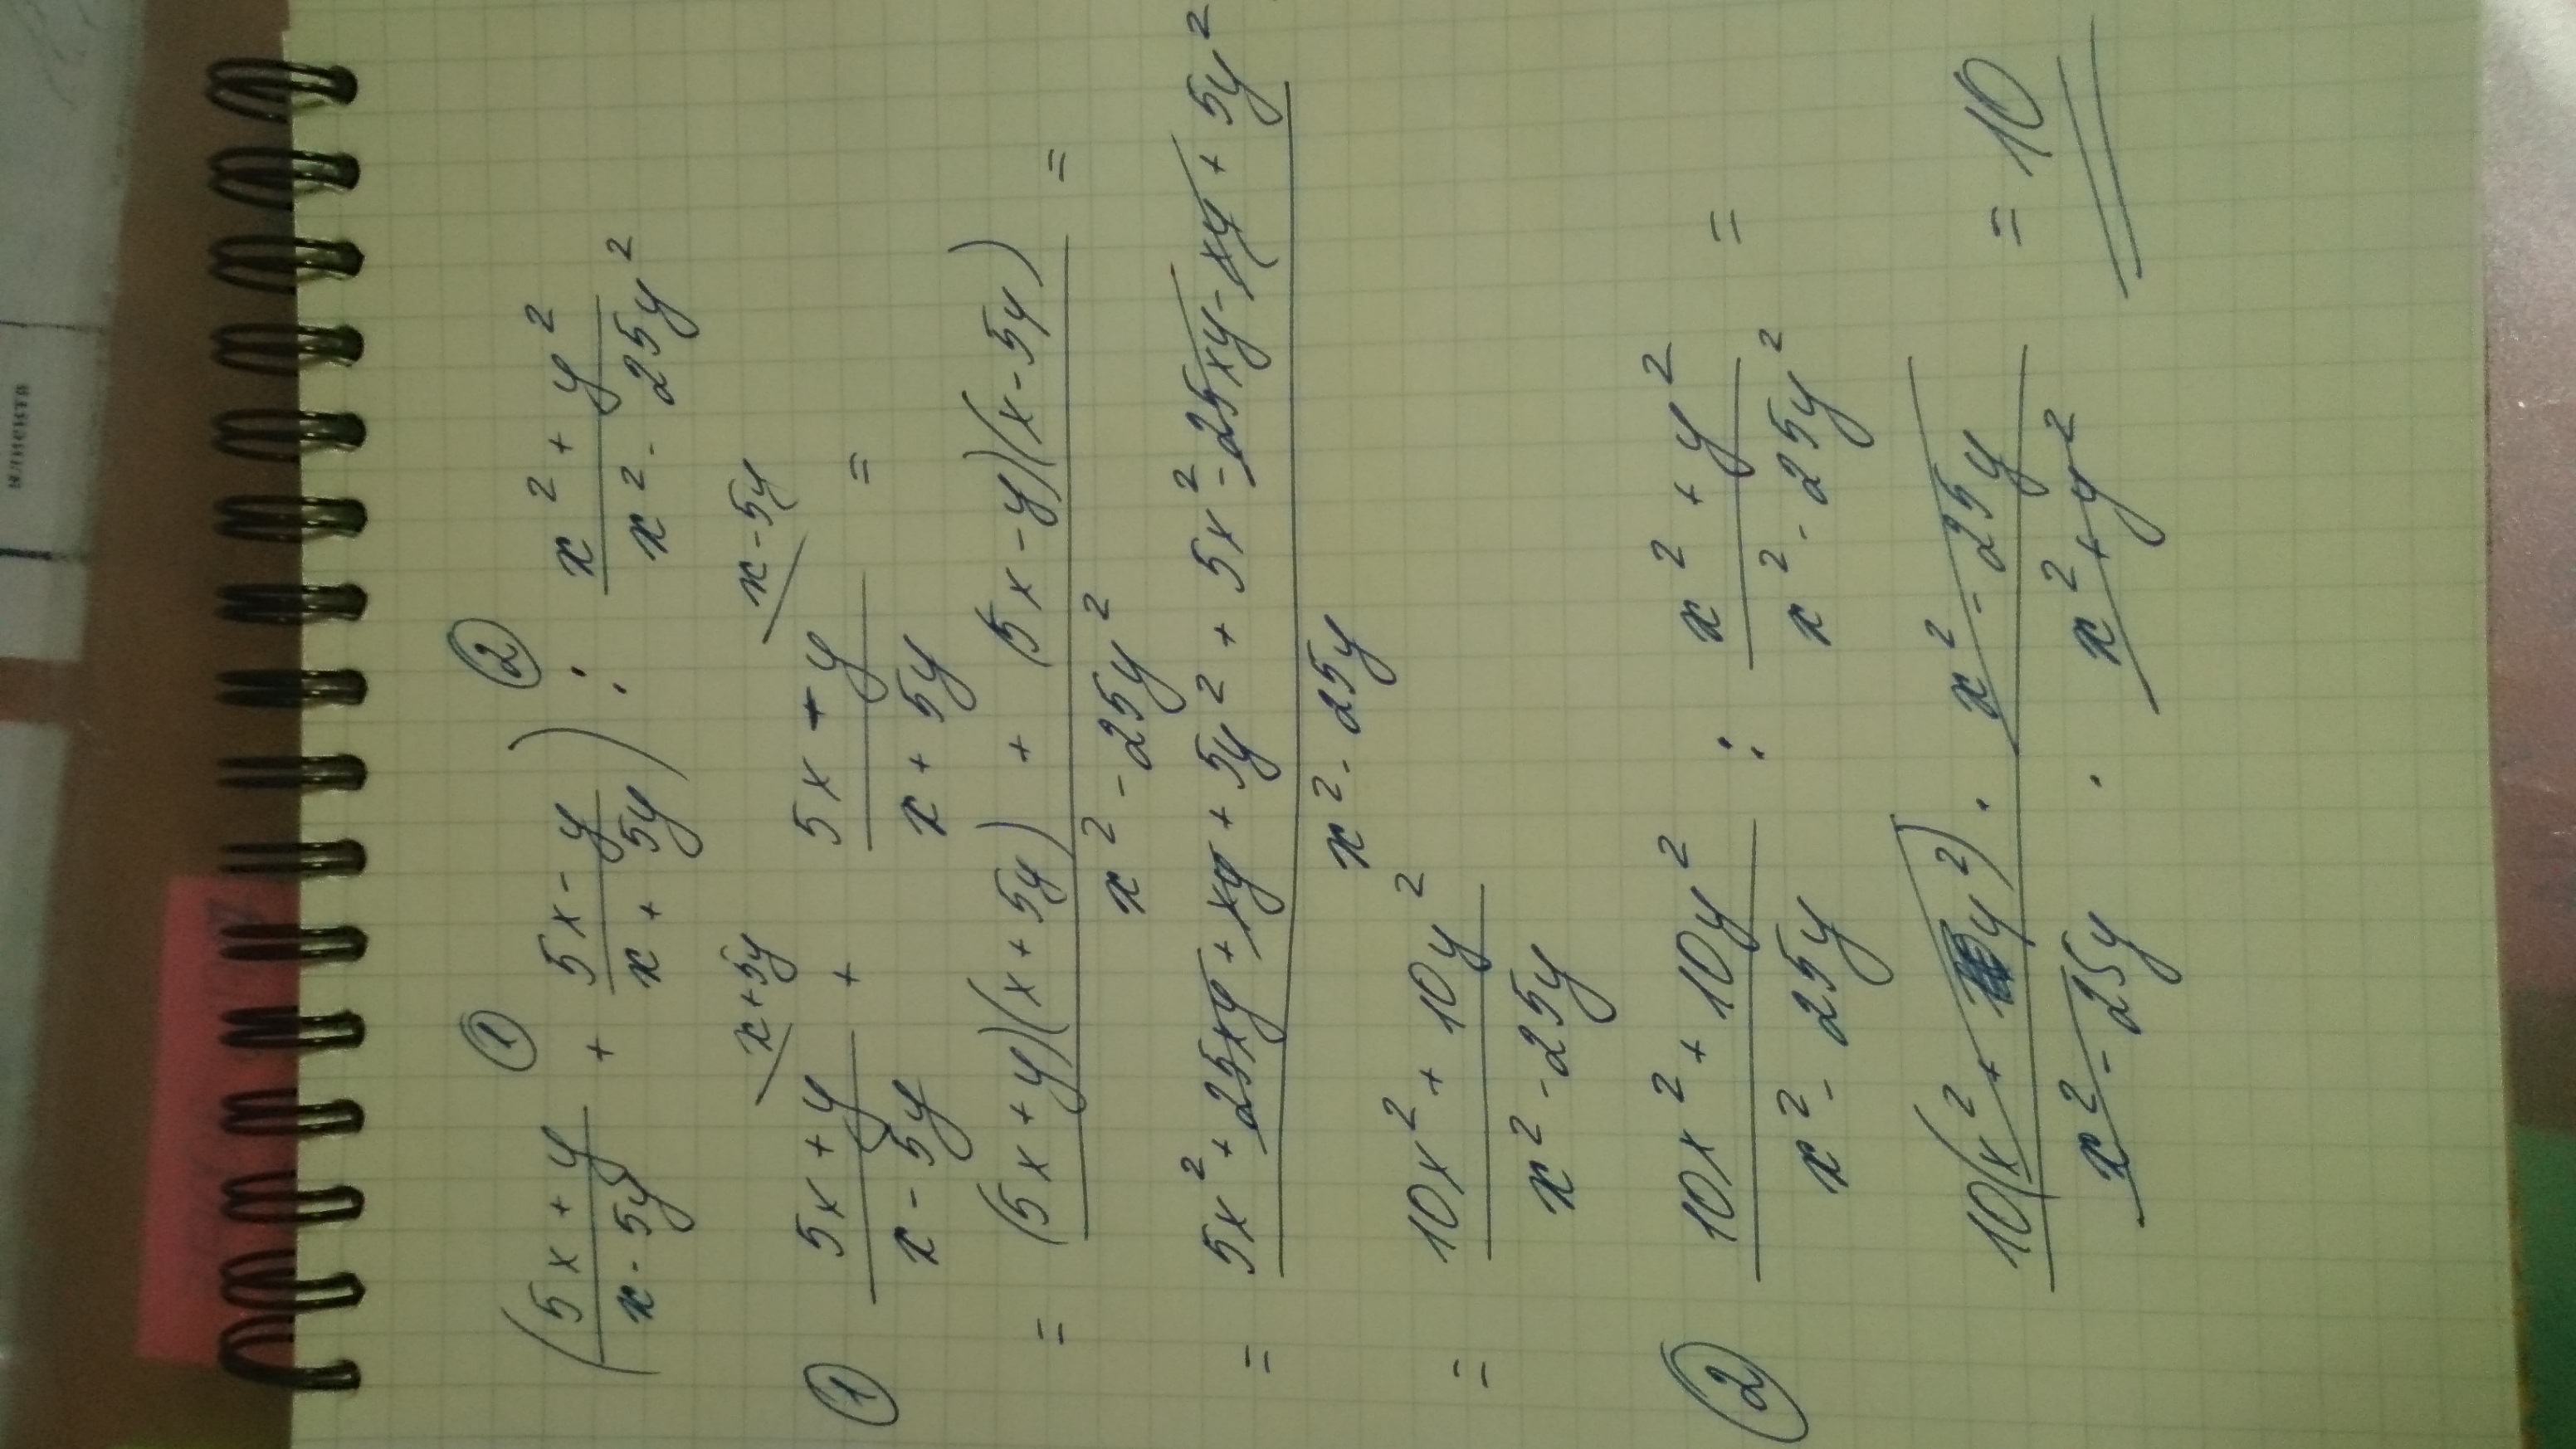 ① ②
(5x + y / x - 5y + 5x - y / x + 5y) : x² + y² / x² - 25y²
x + 5y x - 5y
① 5x + y / x - 5y + 5x - y / x + 5y =
= (5x + y)(x + 5y) + (5x - y)(x - 5y) / x² - 25y² =
= 5x² + 25xy + xy + 5y² + 5x² - 25xy - xy + 5y² / x² - 25y
= 10x² + 10y² / x² - 25y
② 10x² + 10y² / x² - 25y : x² + y² / x² - 25y² =
10(x² + y²) · x² - 25y / x² - 25y · x² + y² = 10